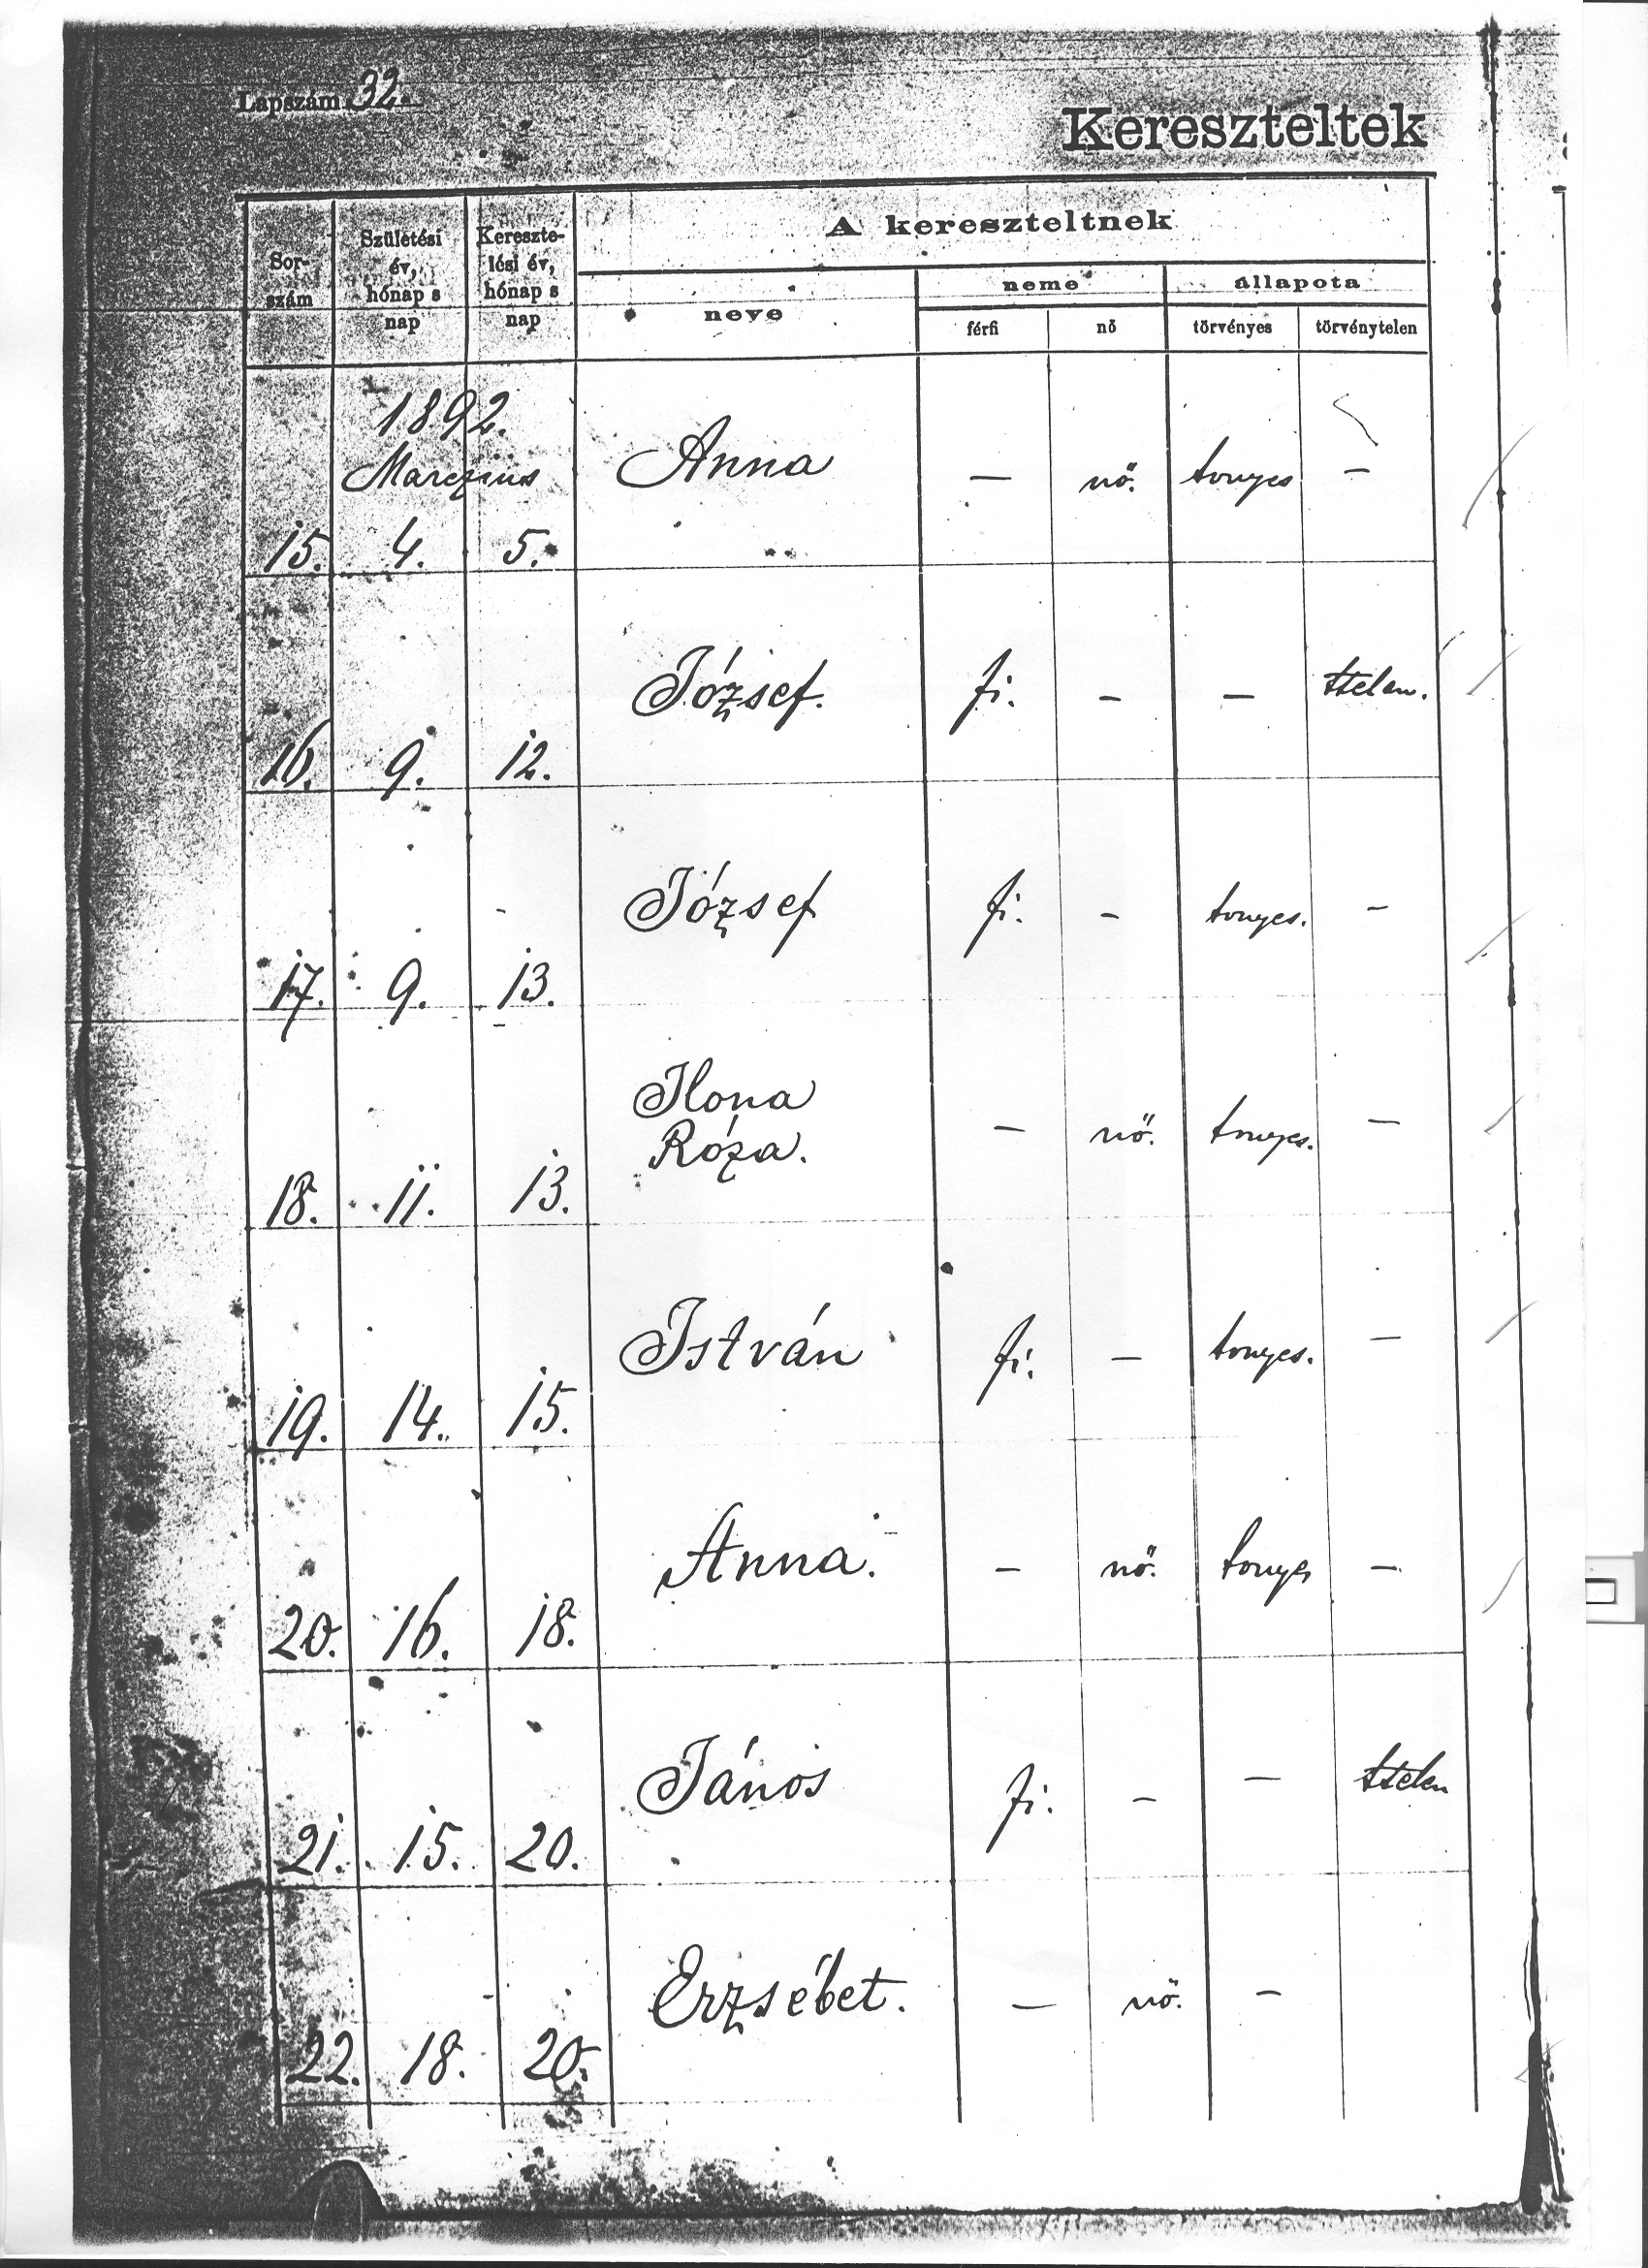 Lapszám 32.
Kereszteltek
Sor-
szám
Születési
év,
hónap s
nap
Kereszte-
lési év,
hónap s
nap
A kereszteltnek
neve
neme
állapota
férfi
nő
törvényes
törvénytelen
1892.
Marczius
15. 4. 5. Anna — nő. tvnyes —
16. 9. 12. József. fi. — — ttelen.
17. 9. 13. József fi. — tvnyes. —
18. 11. 13. Ilona
Róza. — nő. tvnyes. —
19. 14. 15. István fi. — tvnyes. —
20. 16. 18. Anna. — nő. tvnyes —
21. 15. 20. János fi. — — ttelen
22. 18. 20. Erzsébet. — nő. —